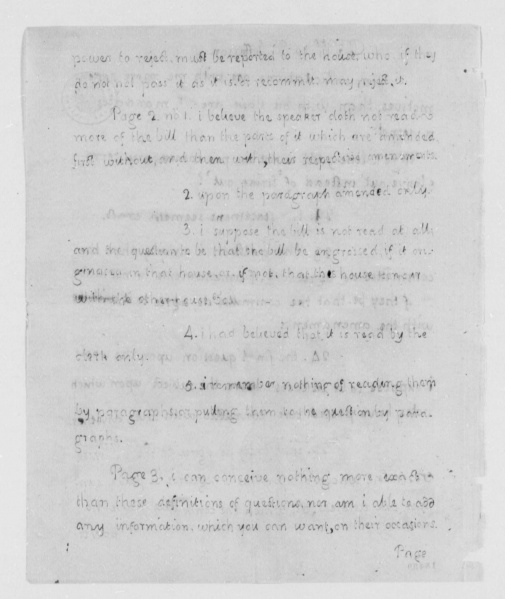 power to reject. must be reported to the house. who, if they
do not not pass it as it is, or recommit. may reject it.
Page 2. no 1. i believe the speaker doth not read no
more of the bill than the parts of it which are amended
first without, and then, with, their respective amendments.
2. upon the paragraph amended only.
3. i suppose the bill is not read at all.
and the question to be that the bill be engrossed, if it ori
ginated in that house, or, if not, that the house concur
with the other
4. i had believed that it is read by the
clerk only.
5. i remember nothing of reading them
by paragraphs or putting them to the question by para
graphs.
Page 3. i can conceive nothing more exact
than these definitions of questions, nor am i able to add
any information, which you can want, on their occasions.
Page